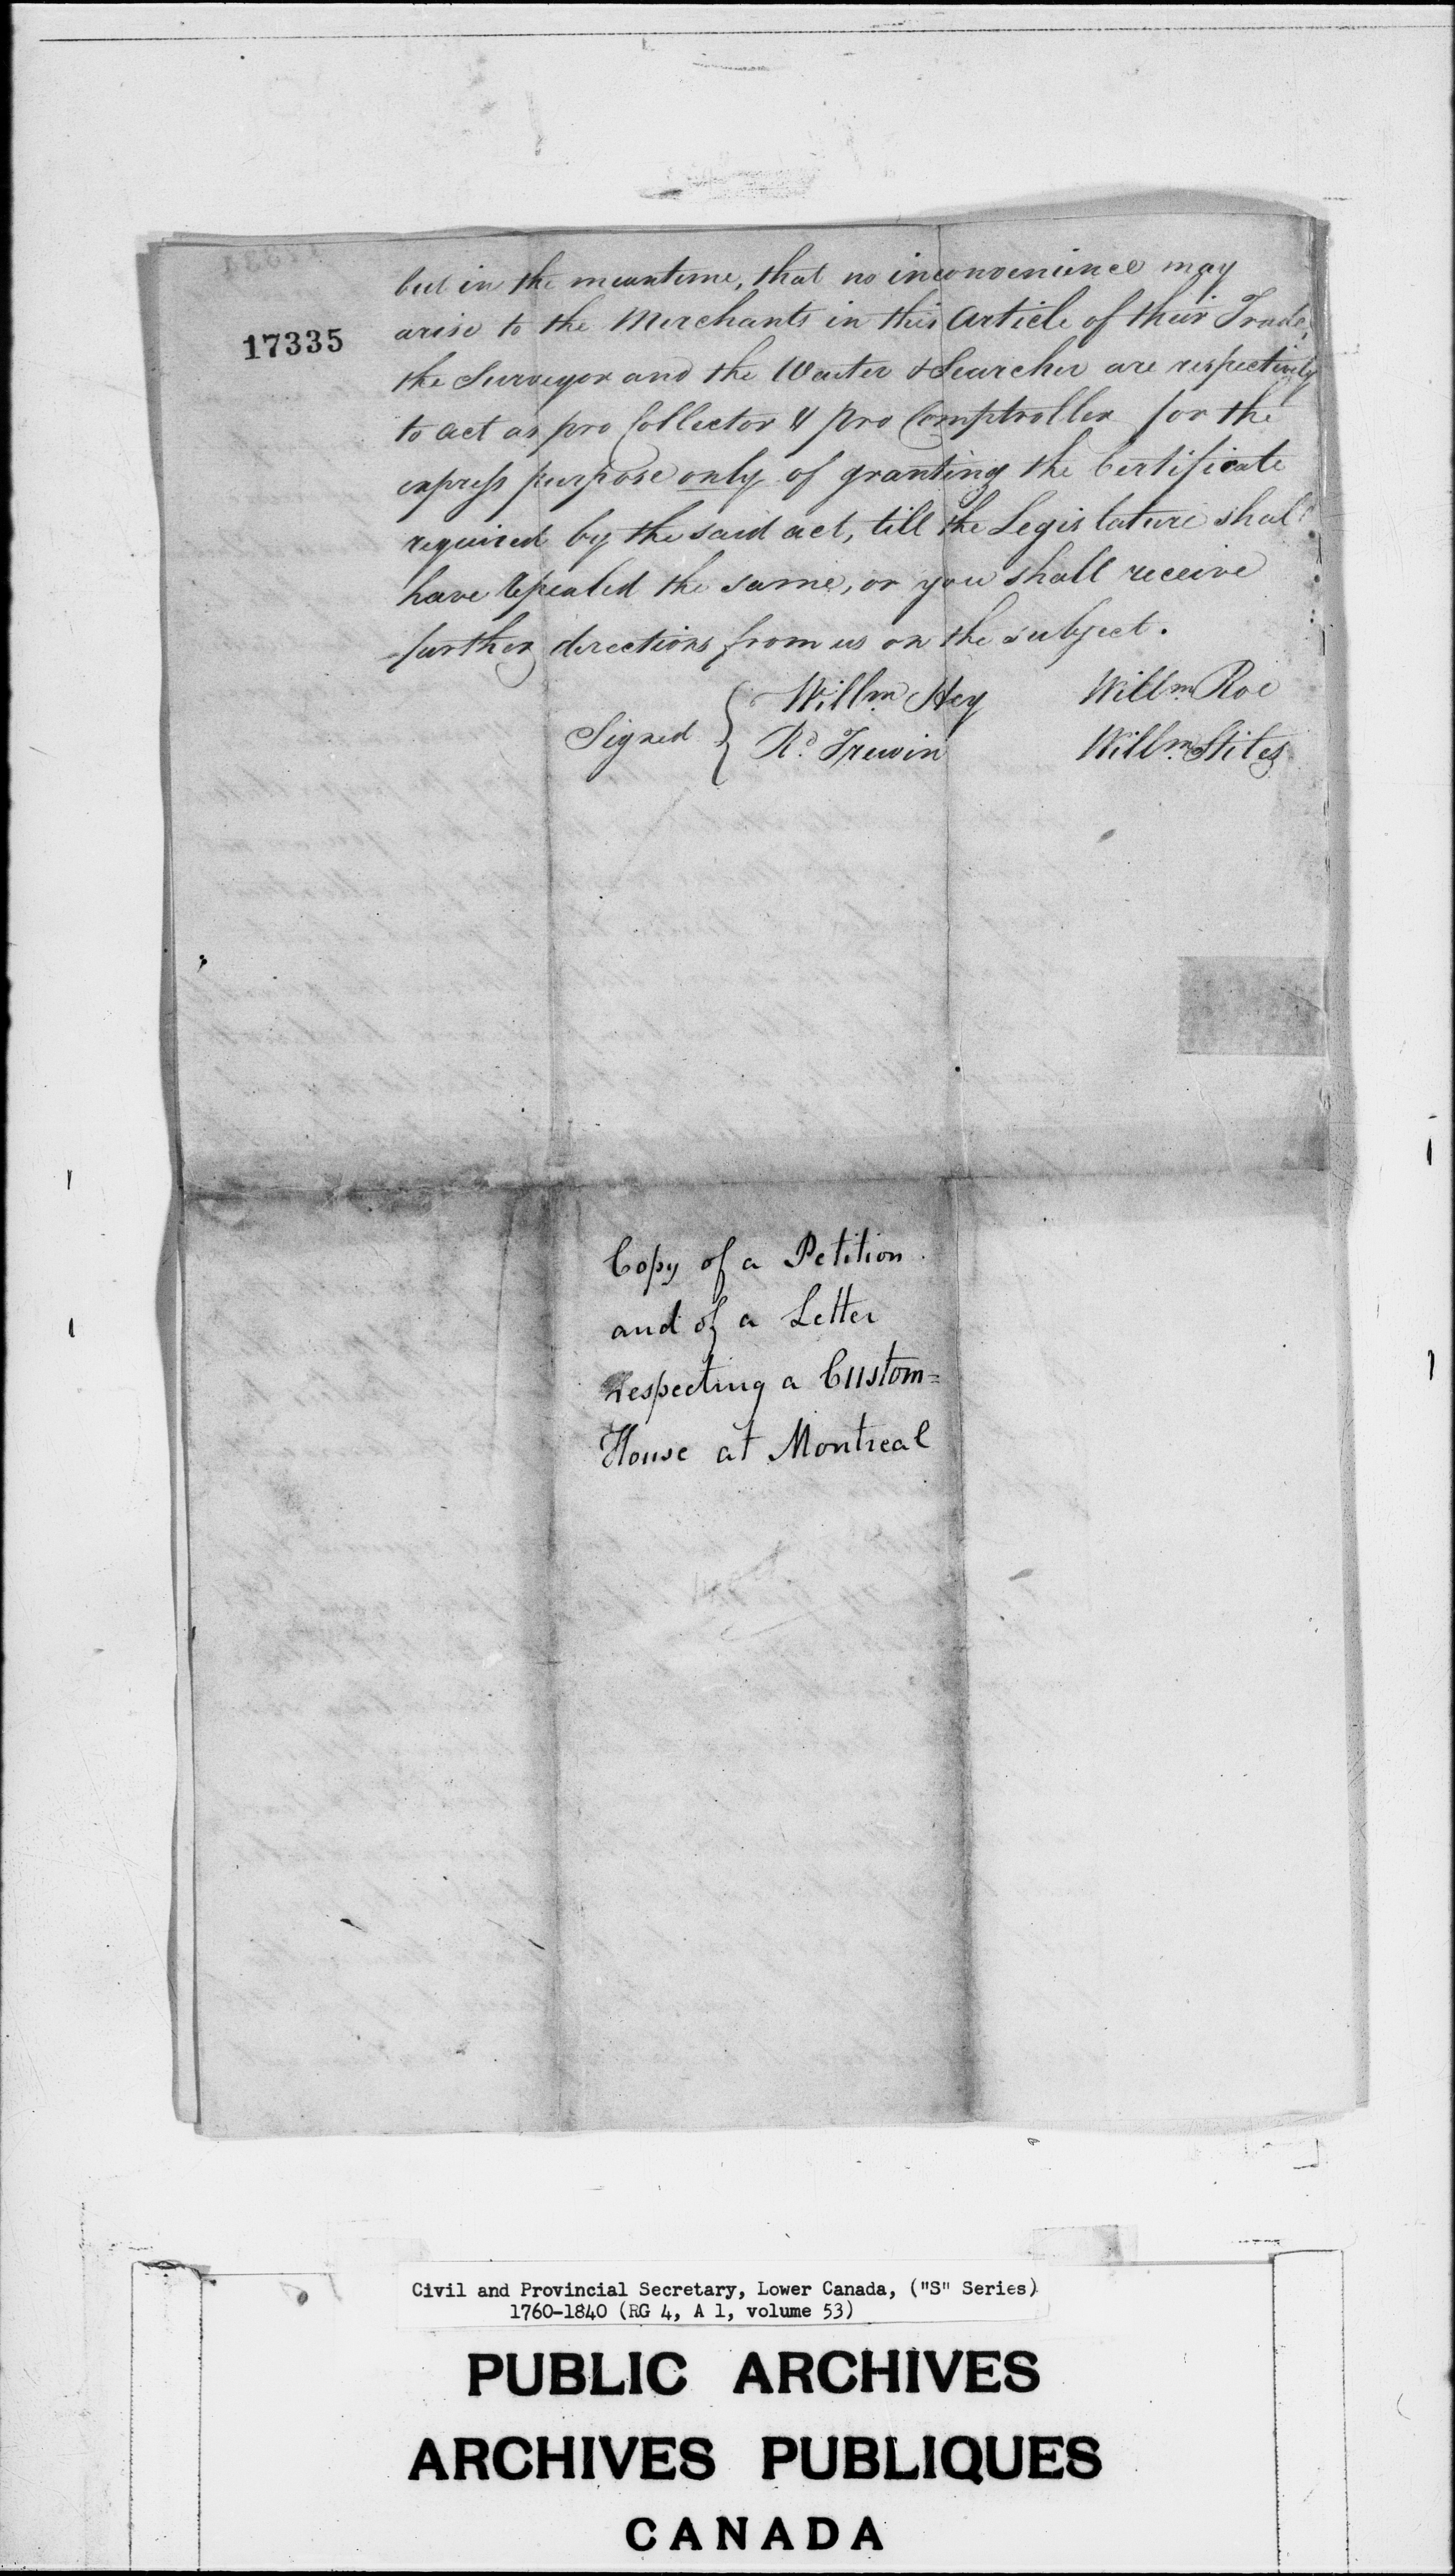 but in the meantime, that no inconvenience may
17335
arise to the Merchants in this Article of their Trade,
the Surveyor and the Waiter & Searcher are respectively
to act as pro Collector & pro Comptroller for the
express purpose only of granting the Certificate
required by the said act, till the Legislature shall
have repealed the same, or you shall receive
further directions from us on the subject.
Signed { Willm. Hey Willm. Roe
Rd. Frewin Willm. Stiles
Copy of a Petition
and of a Letter
respecting a Custom=
House at Montreal
Civil and Provincial Secretary, Lower Canada, ("S" Series)
1760-1840 (RG 4, A 1, volume 53)
PUBLIC ARCHIVES
ARCHIVES PUBLIQUES
CANADA